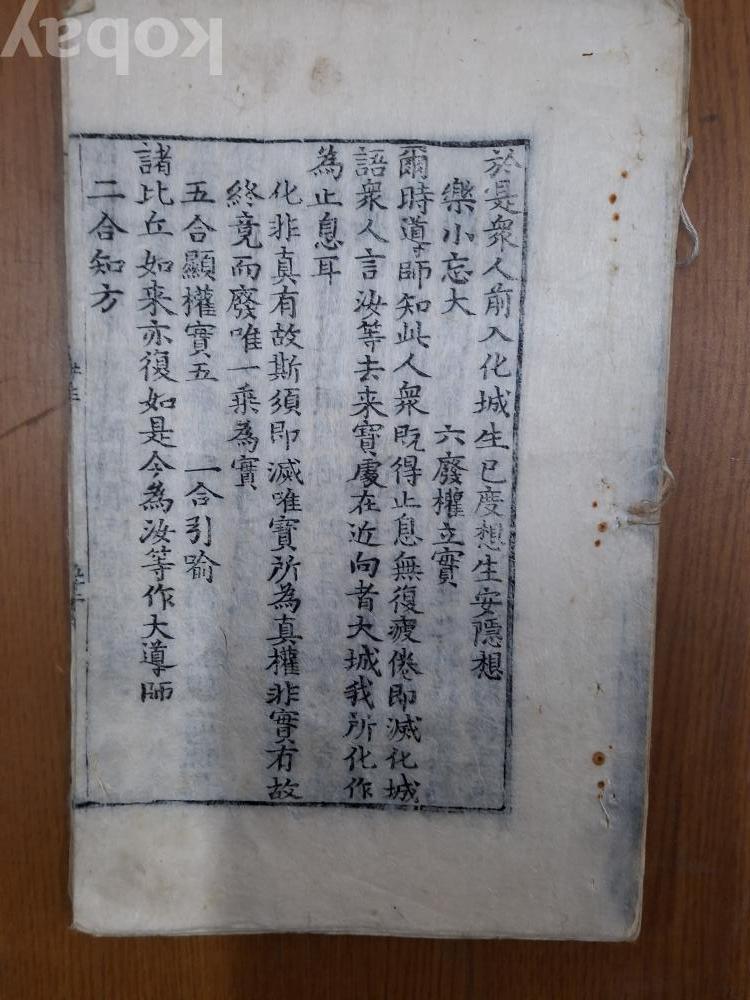 於是衆人前入化城生已度想生安隱想
樂小忘大 六廢權立實
爾時導師知此人衆旣得止息無復疲倦即滅化城
語衆人言汝等去来寶處在近向者大城我所化作
為止息耳
化非真有故斯須即滅唯寶所為真權非實有故
終竟而廢唯一乗為實
五合顯權實五 一合引喻
諸比丘如来亦復如是今為汝等作大導師
二合知方
kobay